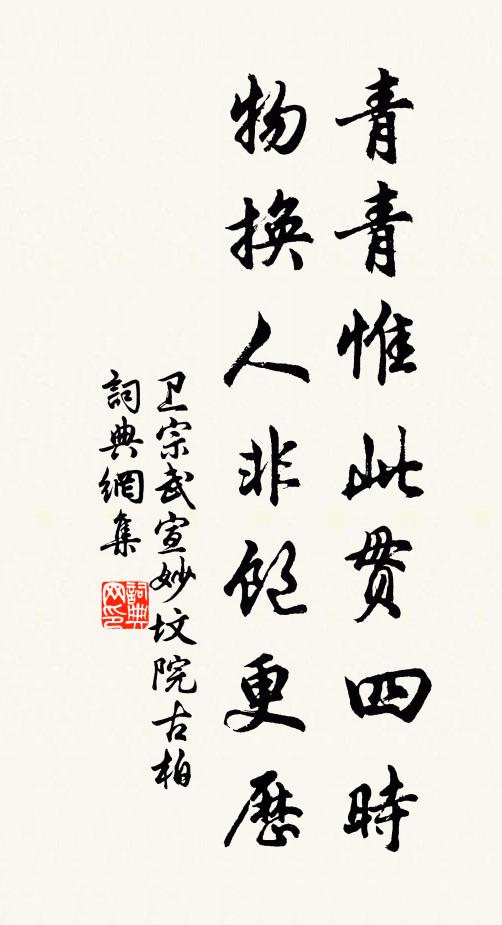 青青惟此贯四時
物換人非飽更歷
卫宗武宣妙坟院古柏
詞典網集
詞典网印